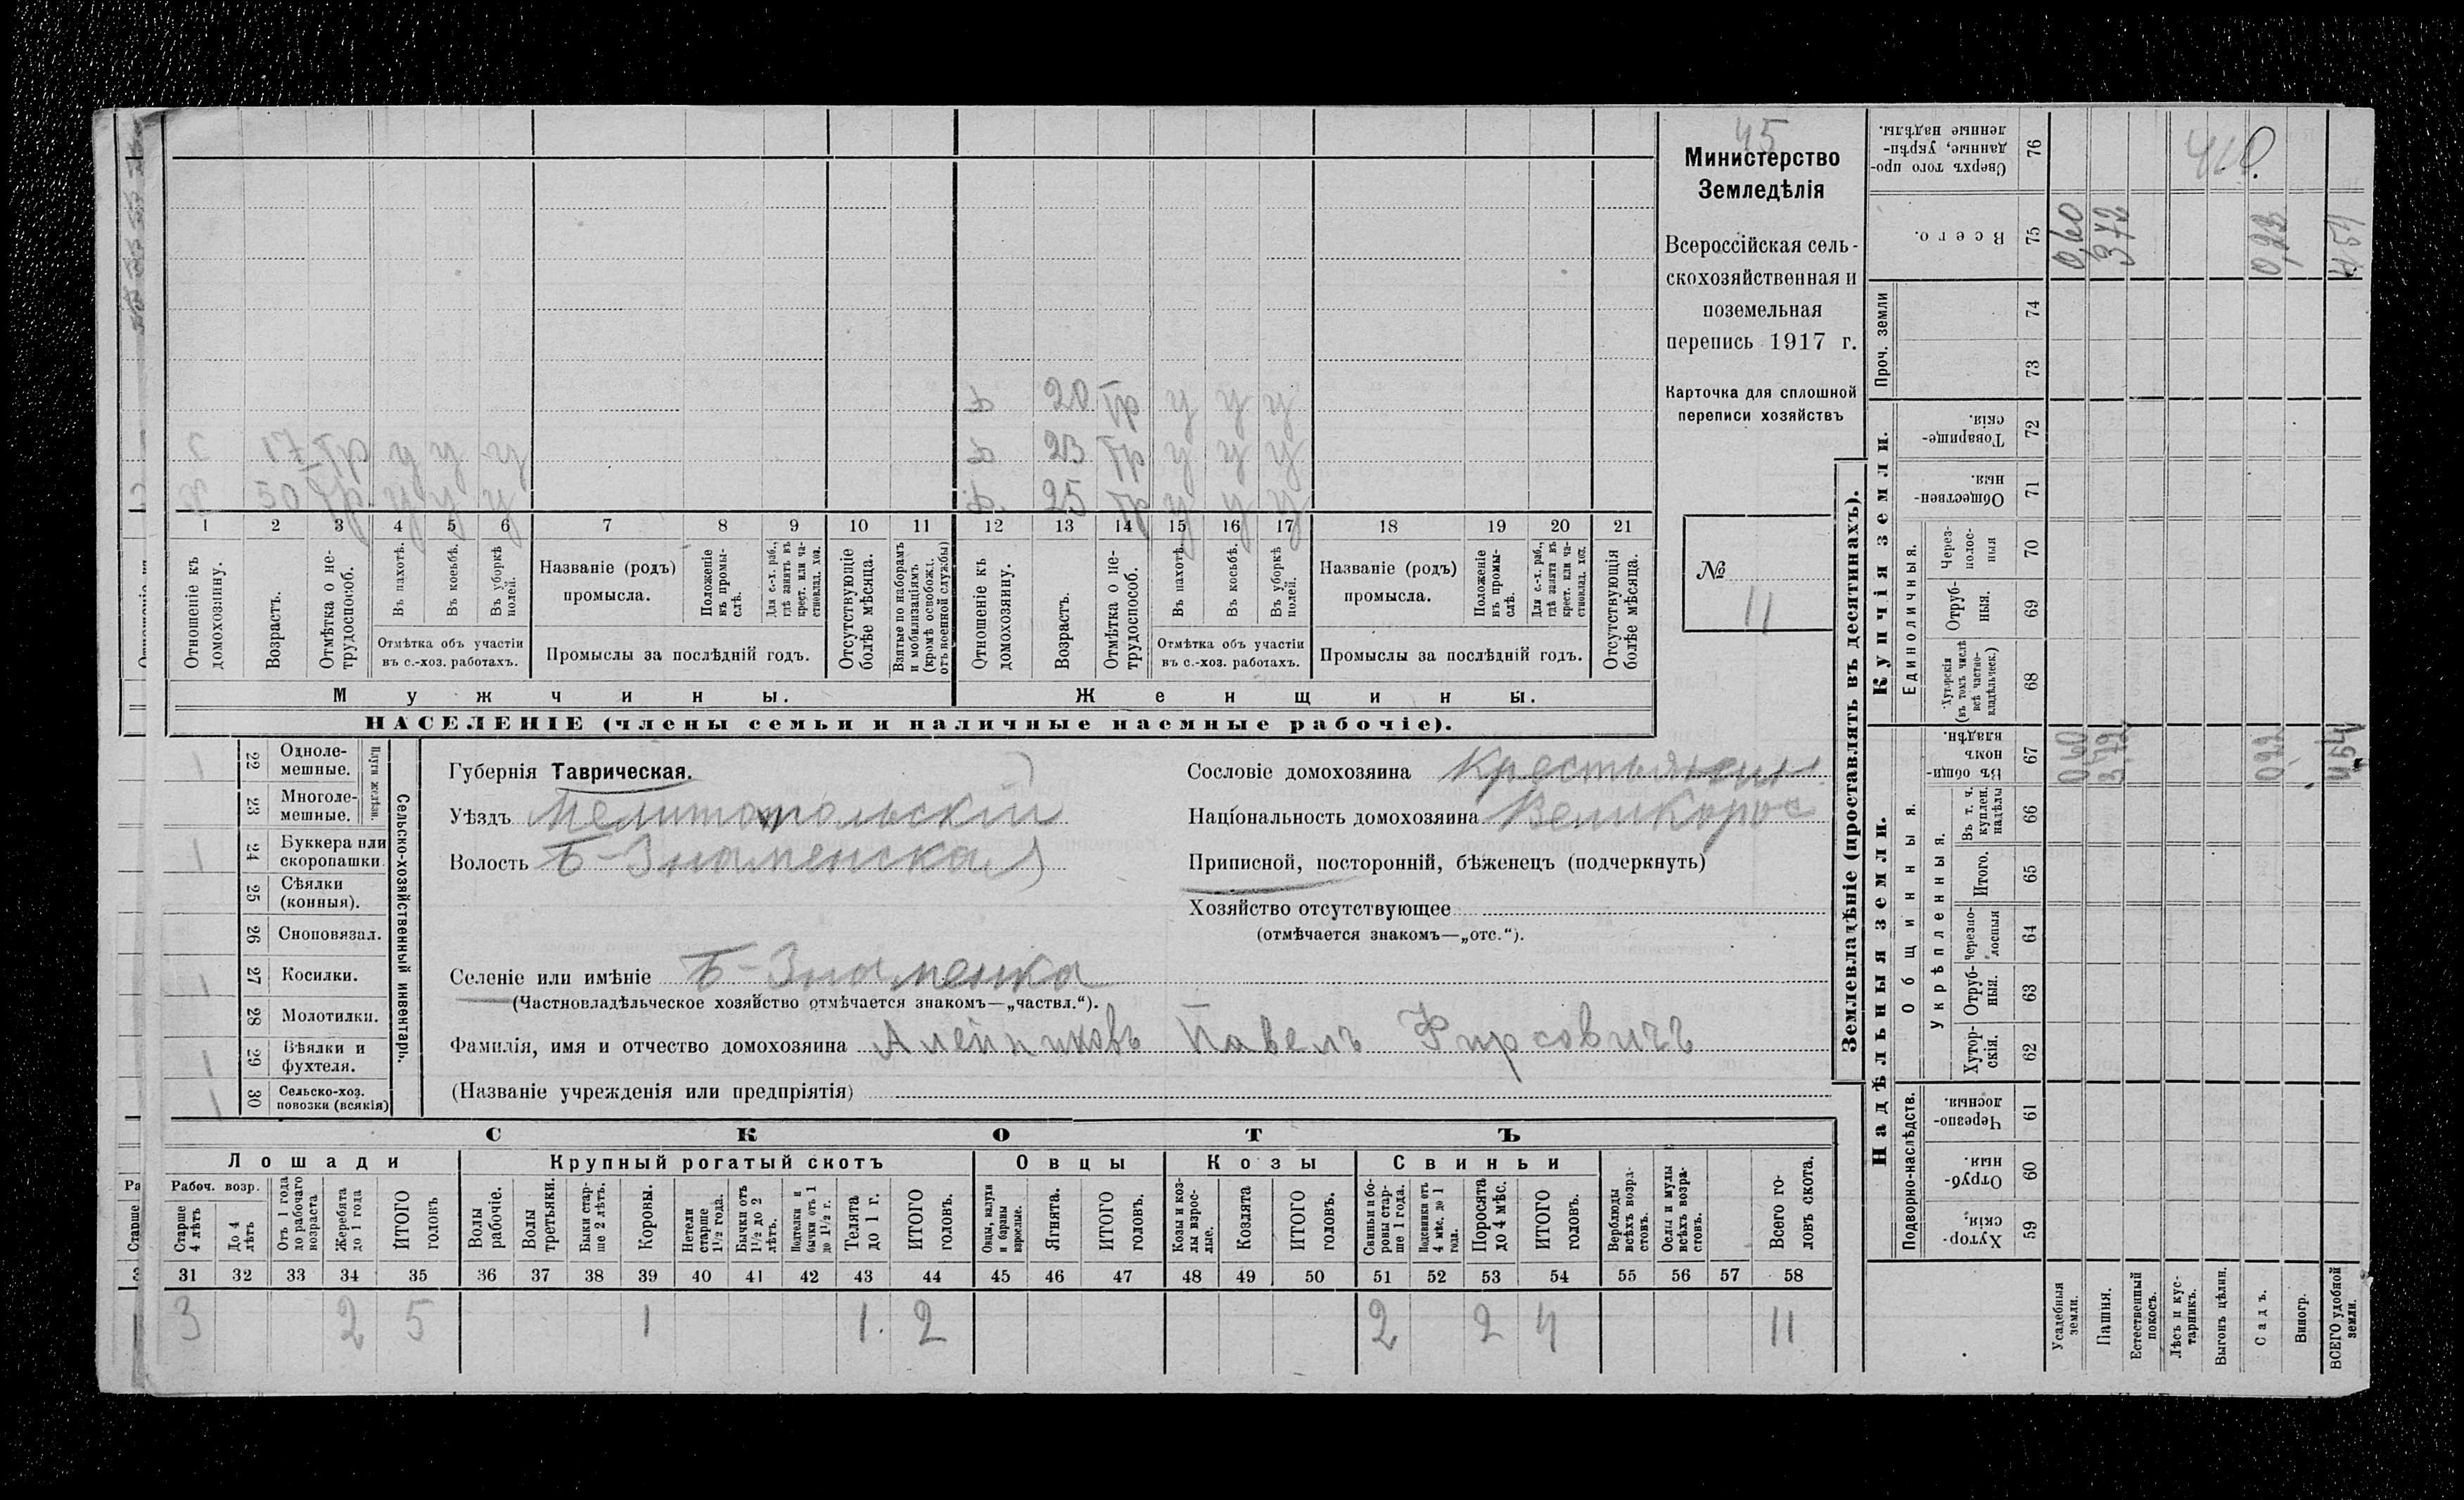 45
Министерство
Земледѣлія
Всероссійская сель-
скохозяйственная и
поземельная
перепись 1917 г.
Карточка для сплошной
переписи хозяйствъ
№
11
Ф 20 Тр у у у
С 17 Тр у у у
Ф 23 Тр у у у
Х 50 Тр у у у
Ф. 25 Тр у у у
1 2 3 4 5 6 7 8 9 10 11 12 13 14 15 16 17 18 19 20 21
Отношеніе къ домохозяину.
Возрастъ.
Отмѣтка о не-трудоспособ.
Въ пахотѣ.
Въ косьбѣ.
Въ уборкѣ полей.
Отмѣтка объ участіи
въ с.-хоз. работахъ.
Названіе (родъ)
промысла.
Положеніе въ промы-слѣ.
Для с.-х. раб., гдѣ занятъ въ крест. или ча-стновлад. хоз.
Промыслы за послѣдній годъ.
Отсутствующіе болѣе мѣсяца.
Взятые по наборамъ и мобилизаціямъ (кромѣ освобожд. отъ военной службы)
Отношеніе къ домохозяину.
Возрастъ.
Отмѣтка о не-трудоспособ.
Въ пахотѣ.
Въ косьбѣ.
Въ уборкѣ полей.
Отмѣтка объ участіи
въ с.-хоз. работахъ.
Названіе (родъ)
промысла.
Положеніе въ промы-слѣ.
Для с.-х. раб., гдѣ занята въ крест. или ча-стновлад. хоз.
Промыслы за послѣдній годъ.
Отсутствующія болѣе мѣсяца.
Мужчины.
Женщины.
НАСЕЛЕНІЕ (члены семьи и наличные наемные рабочіе).
1 22 Одноле-мешные.
23 Многоле-мешные.
Плуги желѣзн.
1 24 Буккера или скоропашки.
25 Сѣялки (конныя).
26 Сноповязал.
1 27 Косилки.
28 Молотилки.
1 29 Вѣялки и фухтеля.
1 30 Сельско-хоз. повозки (всякія)
Сельско-хозяйственный инвентарь.
Губернія Таврическая.
Уѣздъ Мелитопольскій
Волость Б-Знаменская
Селеніе или имѣніе Б-Знаменка
(Частновладѣльческое хозяйство отмѣчается знакомъ—„частвл.“).
Фамилія, имя и отчество домохозяина Алейниковъ Павелъ Фирсовичъ
(Названіе учрежденія или предпріятія)
Сословіе домохозяина Крестьянин
Національность домохозяина Великорос
Приписной, посторонній, бѣженецъ (подчеркнуть)
Хозяйство отсутствующее
(отмѣчается знакомъ—„отс.“).
СКОТЪ
Лошади
Крупный рогатый скотъ
Овцы
Козы
Свиньи
Рабоч. возр.
Старше 4 лѣтъ
До 4 лѣтъ
Отъ 1 года до рабочаго возраста
Жеребята до 1 года
ИТОГО головъ
Волы рабочіе.
Волы третьяки.
Быки стар-ше 2 лѣтъ.
Коровы.
Нетели старше 1½ года.
Бычки отъ 1½ до 2 лѣтъ.
Подтелки и бычки отъ 1 до 1½ г.
Телята до 1 г.
ИТОГО головъ.
Овцы, валухи и бараны взрослые.
Ягнята.
ИТОГО головъ.
Козы и коз-лы взрос-лые.
Козлята
ИТОГО головъ.
Свиньи и бо-ровы стар-ше 1 года.
Подсвинки отъ 4 мѣс. до 1 года.
Поросята до 4 мѣс.
ИТОГО головъ.
Верблюды всѣхъ возра-стовъ.
Ослы и мулы всѣхъ возра-стовъ.
Всего го-ловъ скота.
31 32 33 34 35 36 37 38 39 40 41 42 43 44 45 46 47 48 49 50 51 52 53 54 55 56 57 58
3 2 5 1 1. 2 2 2 4 11
Землевладѣніе (проставлять въ десятинахъ).
Надѣльныя земли.
Купчія земли.
Проч. земли
Подворно-наслѣдств.
Общинныя.
Укрѣпленныя.
Единоличныя.
Хутор-скія. 59
Отруб-ныя. 60
Черезпо-лосныя. 61
Хутор-скія. 62
Отруб-ныя. 63
Черезпо-лосныя 64
Итого. 65
Въ т. ч. куплен. надѣлы 66
Въ общи-номъ владѣн. 67
Хуторскія (въ томъ числѣ всѣ частно-владѣльческ.) 68
Отруб-ныя. 69
Через-полос-ныя 70
Обществен-ныя. 71
Товарище-скія. 72
73
74
Всего. 75
Сверхъ того про-данные, укрѣп-ленные надѣлы. 76
Усадебныя земли. 0,60 0,60
Пашня. 3,72 3,72
Естественный покосъ.
Лѣсъ и кус-тарникъ.
Выгонъ цѣлин.
Садъ. 0,22 0,22
Виногр.
ВСЕГО удобной земли. 4,54 4,54